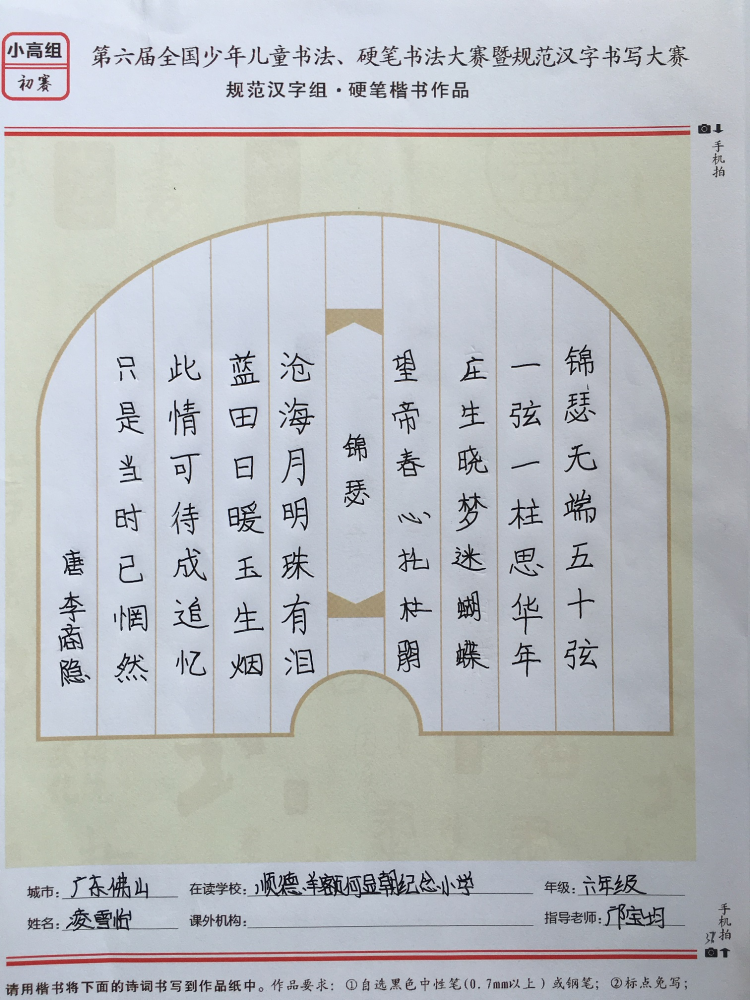 小高组
初赛
第六届全国少年儿童书法、硬笔书法大赛暨规范汉字书写大赛
规范汉字组·硬笔楷书作品
手机拍
锦瑟无端五十弦
一弦一柱思华年
庄生晓梦迷蝴蝶
望帝春心托杜鹃
锦瑟
沧海月明珠有泪
蓝田日暖玉生烟
此情可待成追忆
只是当时已惘然
唐李商隐
城市：广东佛山 在读学校：顺德羊额何显朝纪念小学 年级：六年级
姓名：凌雪怡 课外机构： 指导老师：邝宝均
手机拍
请用楷书将下面的诗词书写到作品纸中。作品要求：①自选黑色中性笔(0.7mm以上)或钢笔；②标点免写；